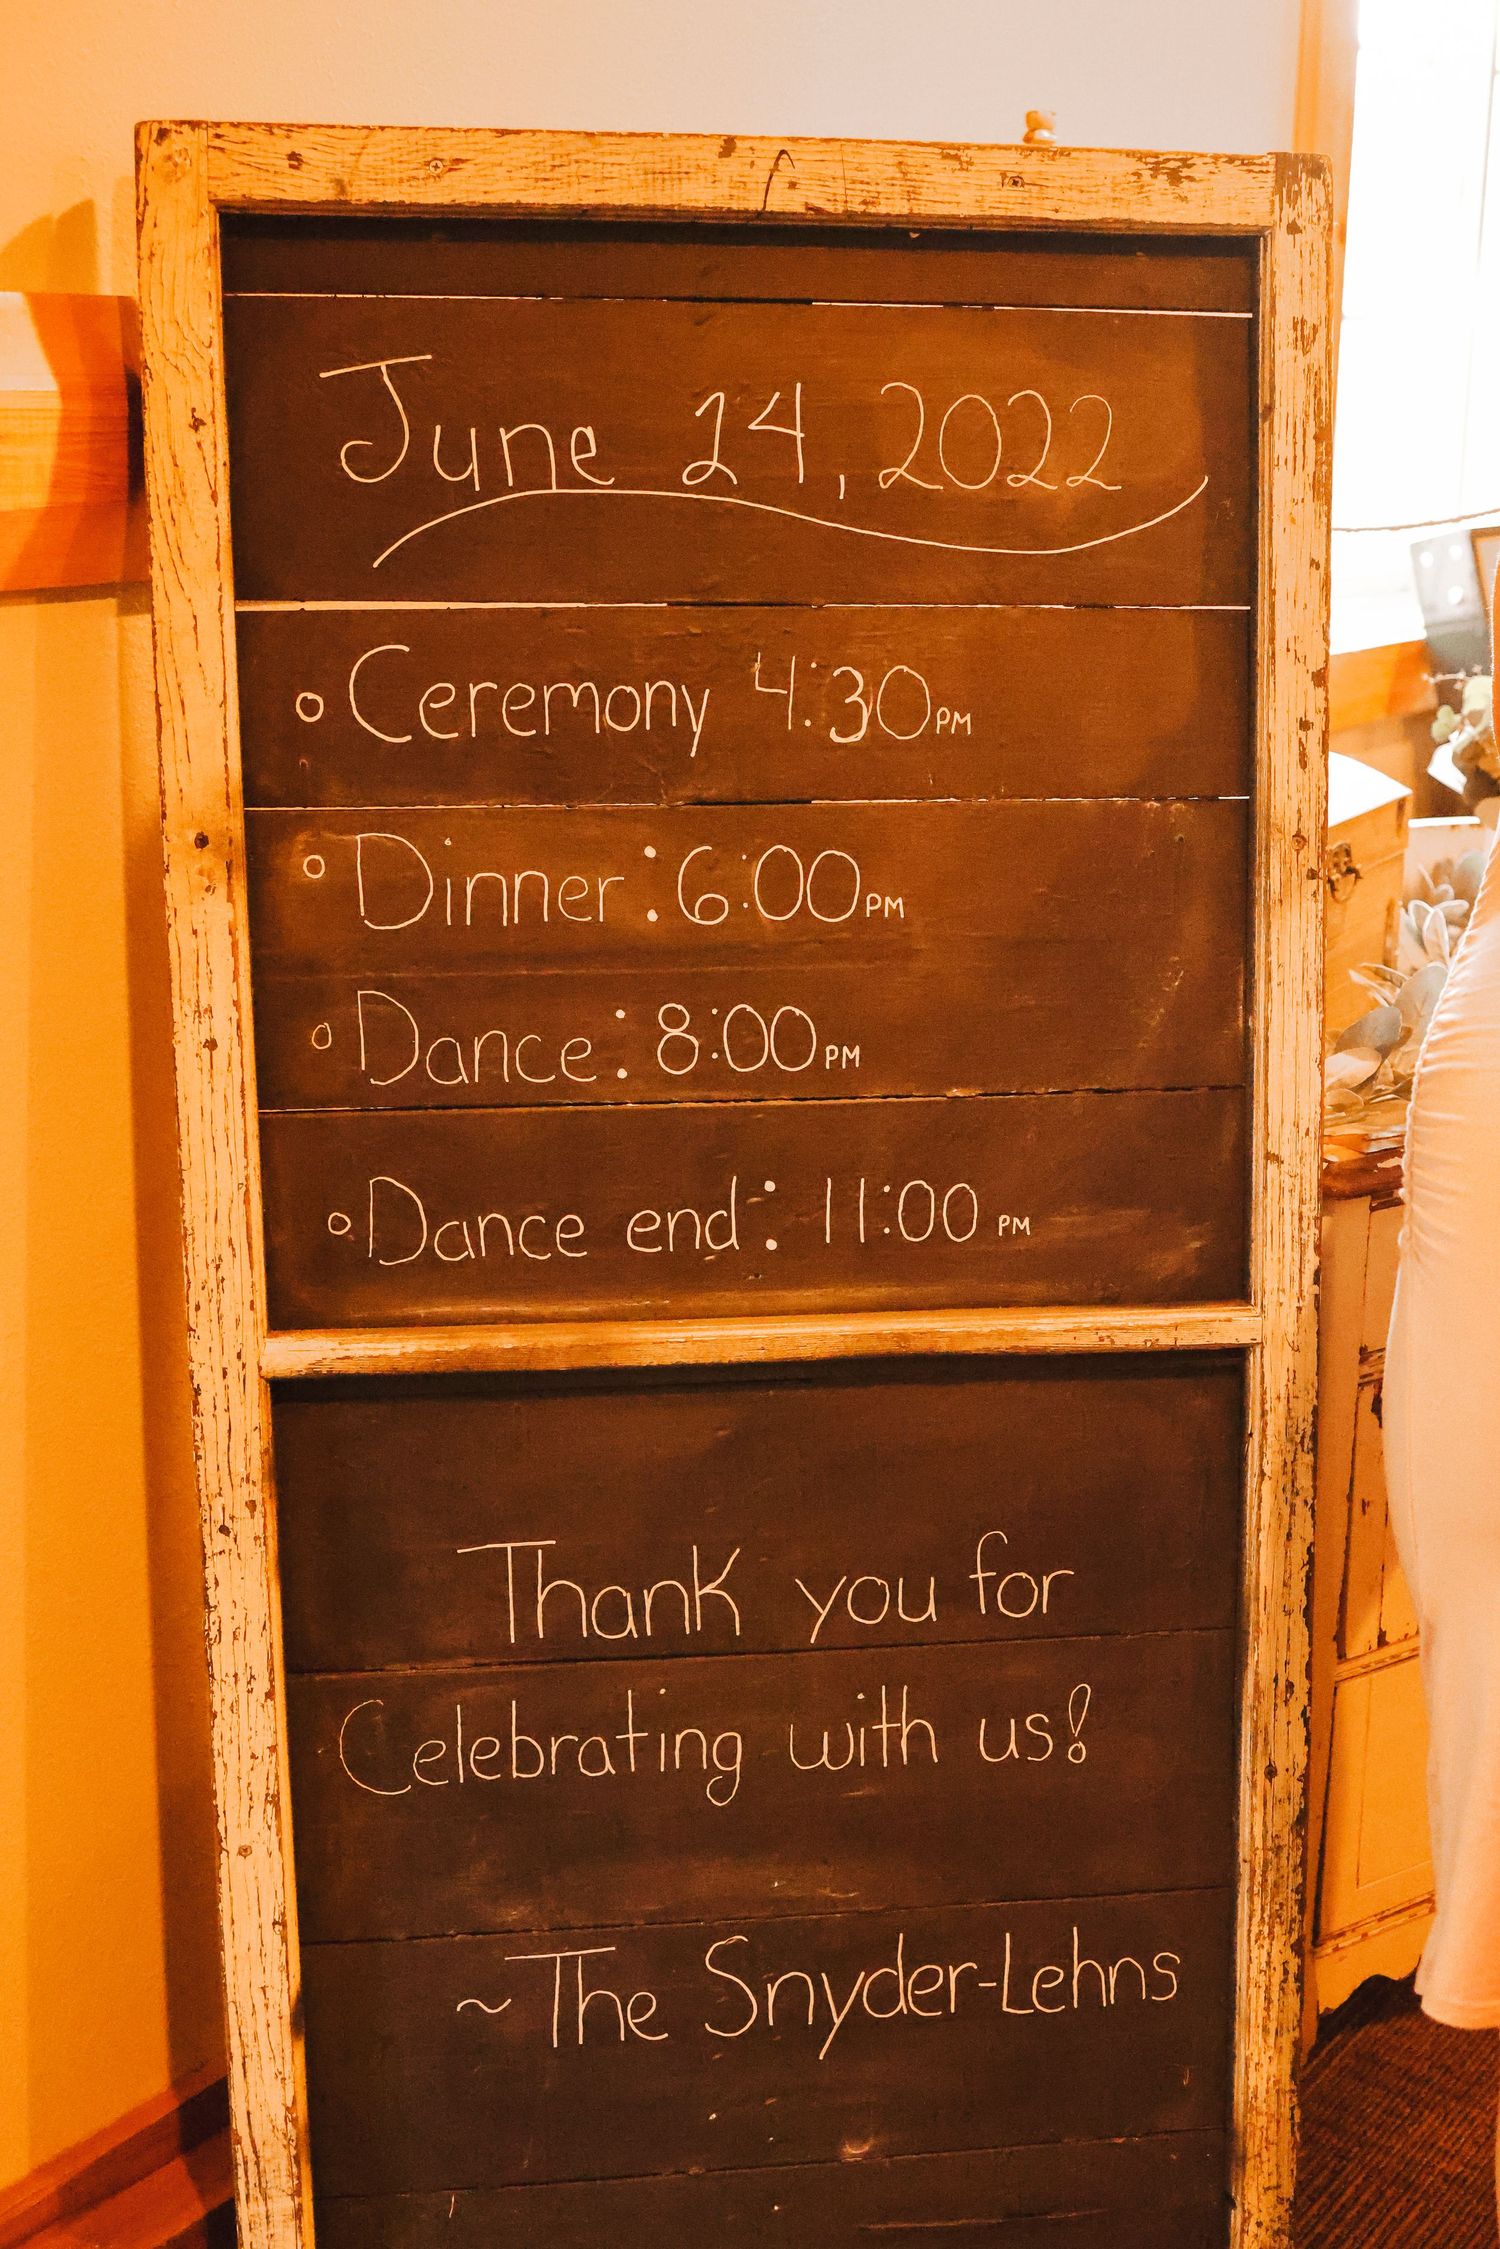 June 24, 2022
Ceremony 4:30PM
Dinner: 6:00PM
Dance: 8:00PM
Dance end: 11:00 PM
Thank you for
Celebrating with us!
~The Snyder-Lehns